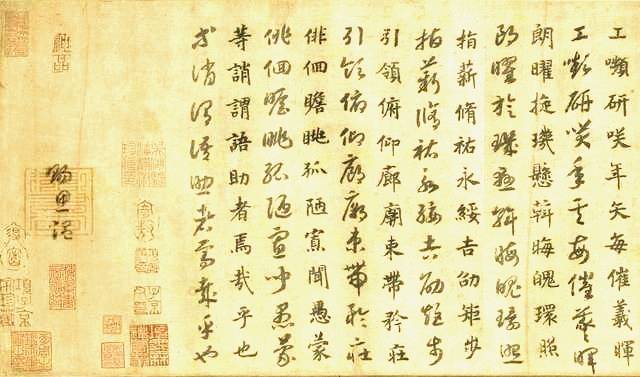 工嚬研咲年矢每催羲暉
工嚬研咲年矢每催羲暉
朗曜旋璣懸斡晦魄環照
朗曜旋璣懸斡晦魄環照
指薪脩祐永綏吉劭矩步
指薪脩祐永綏吉劭矩步
引領俯仰廊廟束帶矜莊
引領俯仰廊廟束帶矜莊
俳佪瞻眺孤陋寡聞愚蒙
俳佪瞻眺孤陋寡聞愚蒙
等誚謂語助者焉哉乎也
等誚謂語助者焉哉乎也